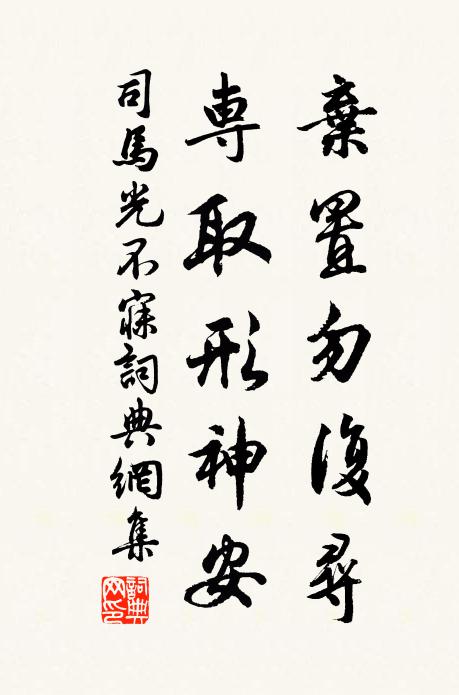 棄置勿復尋
專取形神安
司馬光不寐詞典網集
詞典網印